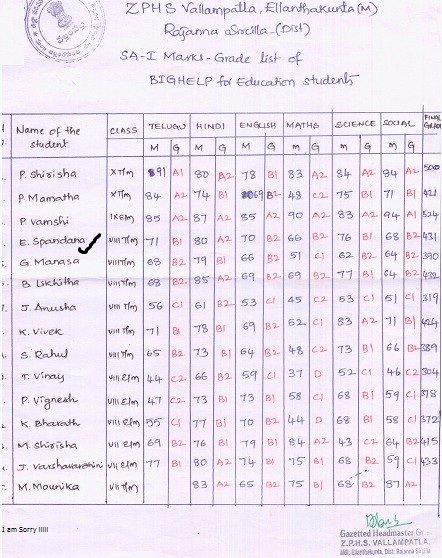 ZPHS Vallampatla, Ellanthakunta(M)
Rajanna Sircilla-(Dist)
SA-I Marks-Grade list of
BIGHELP for Education students
Name of the student CLASS TELUGU HINDI ENGLISH MATHS SCIENCE SOCIAL FINAL GRADE
M G M G M G M G M G M G
P. Shirisha X T/m 91 A1 80 A2 78 B1 83 A2 84 A2 84 A2 500
P. Mamatha X T/m 84 A2 74 B1 69 B2 48 C2 75 B1 71 B1 421
P. Vamshi IX E/m 85 A2 87 A2 85 A2 90 A2 83 A2 94 A1 524
E. Spandana VIII T/m 71 B1 80 A2 70 B2 66 B2 76 B1 68 B2 431
G. Manasa VIII T/m 68 B2 79 B1 66 B2 51 C1 62 B2 64 B2 390
B. Likhitha VIII T/m 68 B2 85 A2 69 B2 69 B2 77 B1 64 B2 432
J. Anusha VIII T/m 56 C1 61 B2 53 C1 45 C2 53 C1 51 C1 319
K. Vivek VII T/m 71 B1 78 B1 69 B2 52 C1 83 A2 71 B1 424
S. Rahul VII T/m 65 B2 73 B1 64 B2 48 C2 73 B1 66 B2 389
T. Vinay VII E/m 44 C2 66 B2 59 C1 37 D 52 C1 46 C2 304
P. Vignesh VII E/m 47 C2 73 B1 73 B1 58 C1 68 B1 59 C1 378
K. Bharath VII E/m 55 C1 77 B1 70 B2 44 D 68 B1 58 C1 372
M. Shirisha VII E/m 69 B2 76 B1 79 B1 84 A2 43 C2 64 B2 415
J. Varshavarshini VII E/m 77 B1 80 A2 74 B1 75 B1 68 B2 59 C1 433
M. Mounika VII T/m 83 A2 65 B2 75 B1 68 B2 87 A2
I am Sorry lllll
Gazetted Headmaster
Z.P.H.S. VALLAMPATLA,
Mdl: Ellanthakunta, Dist: Rajanna Sircilla